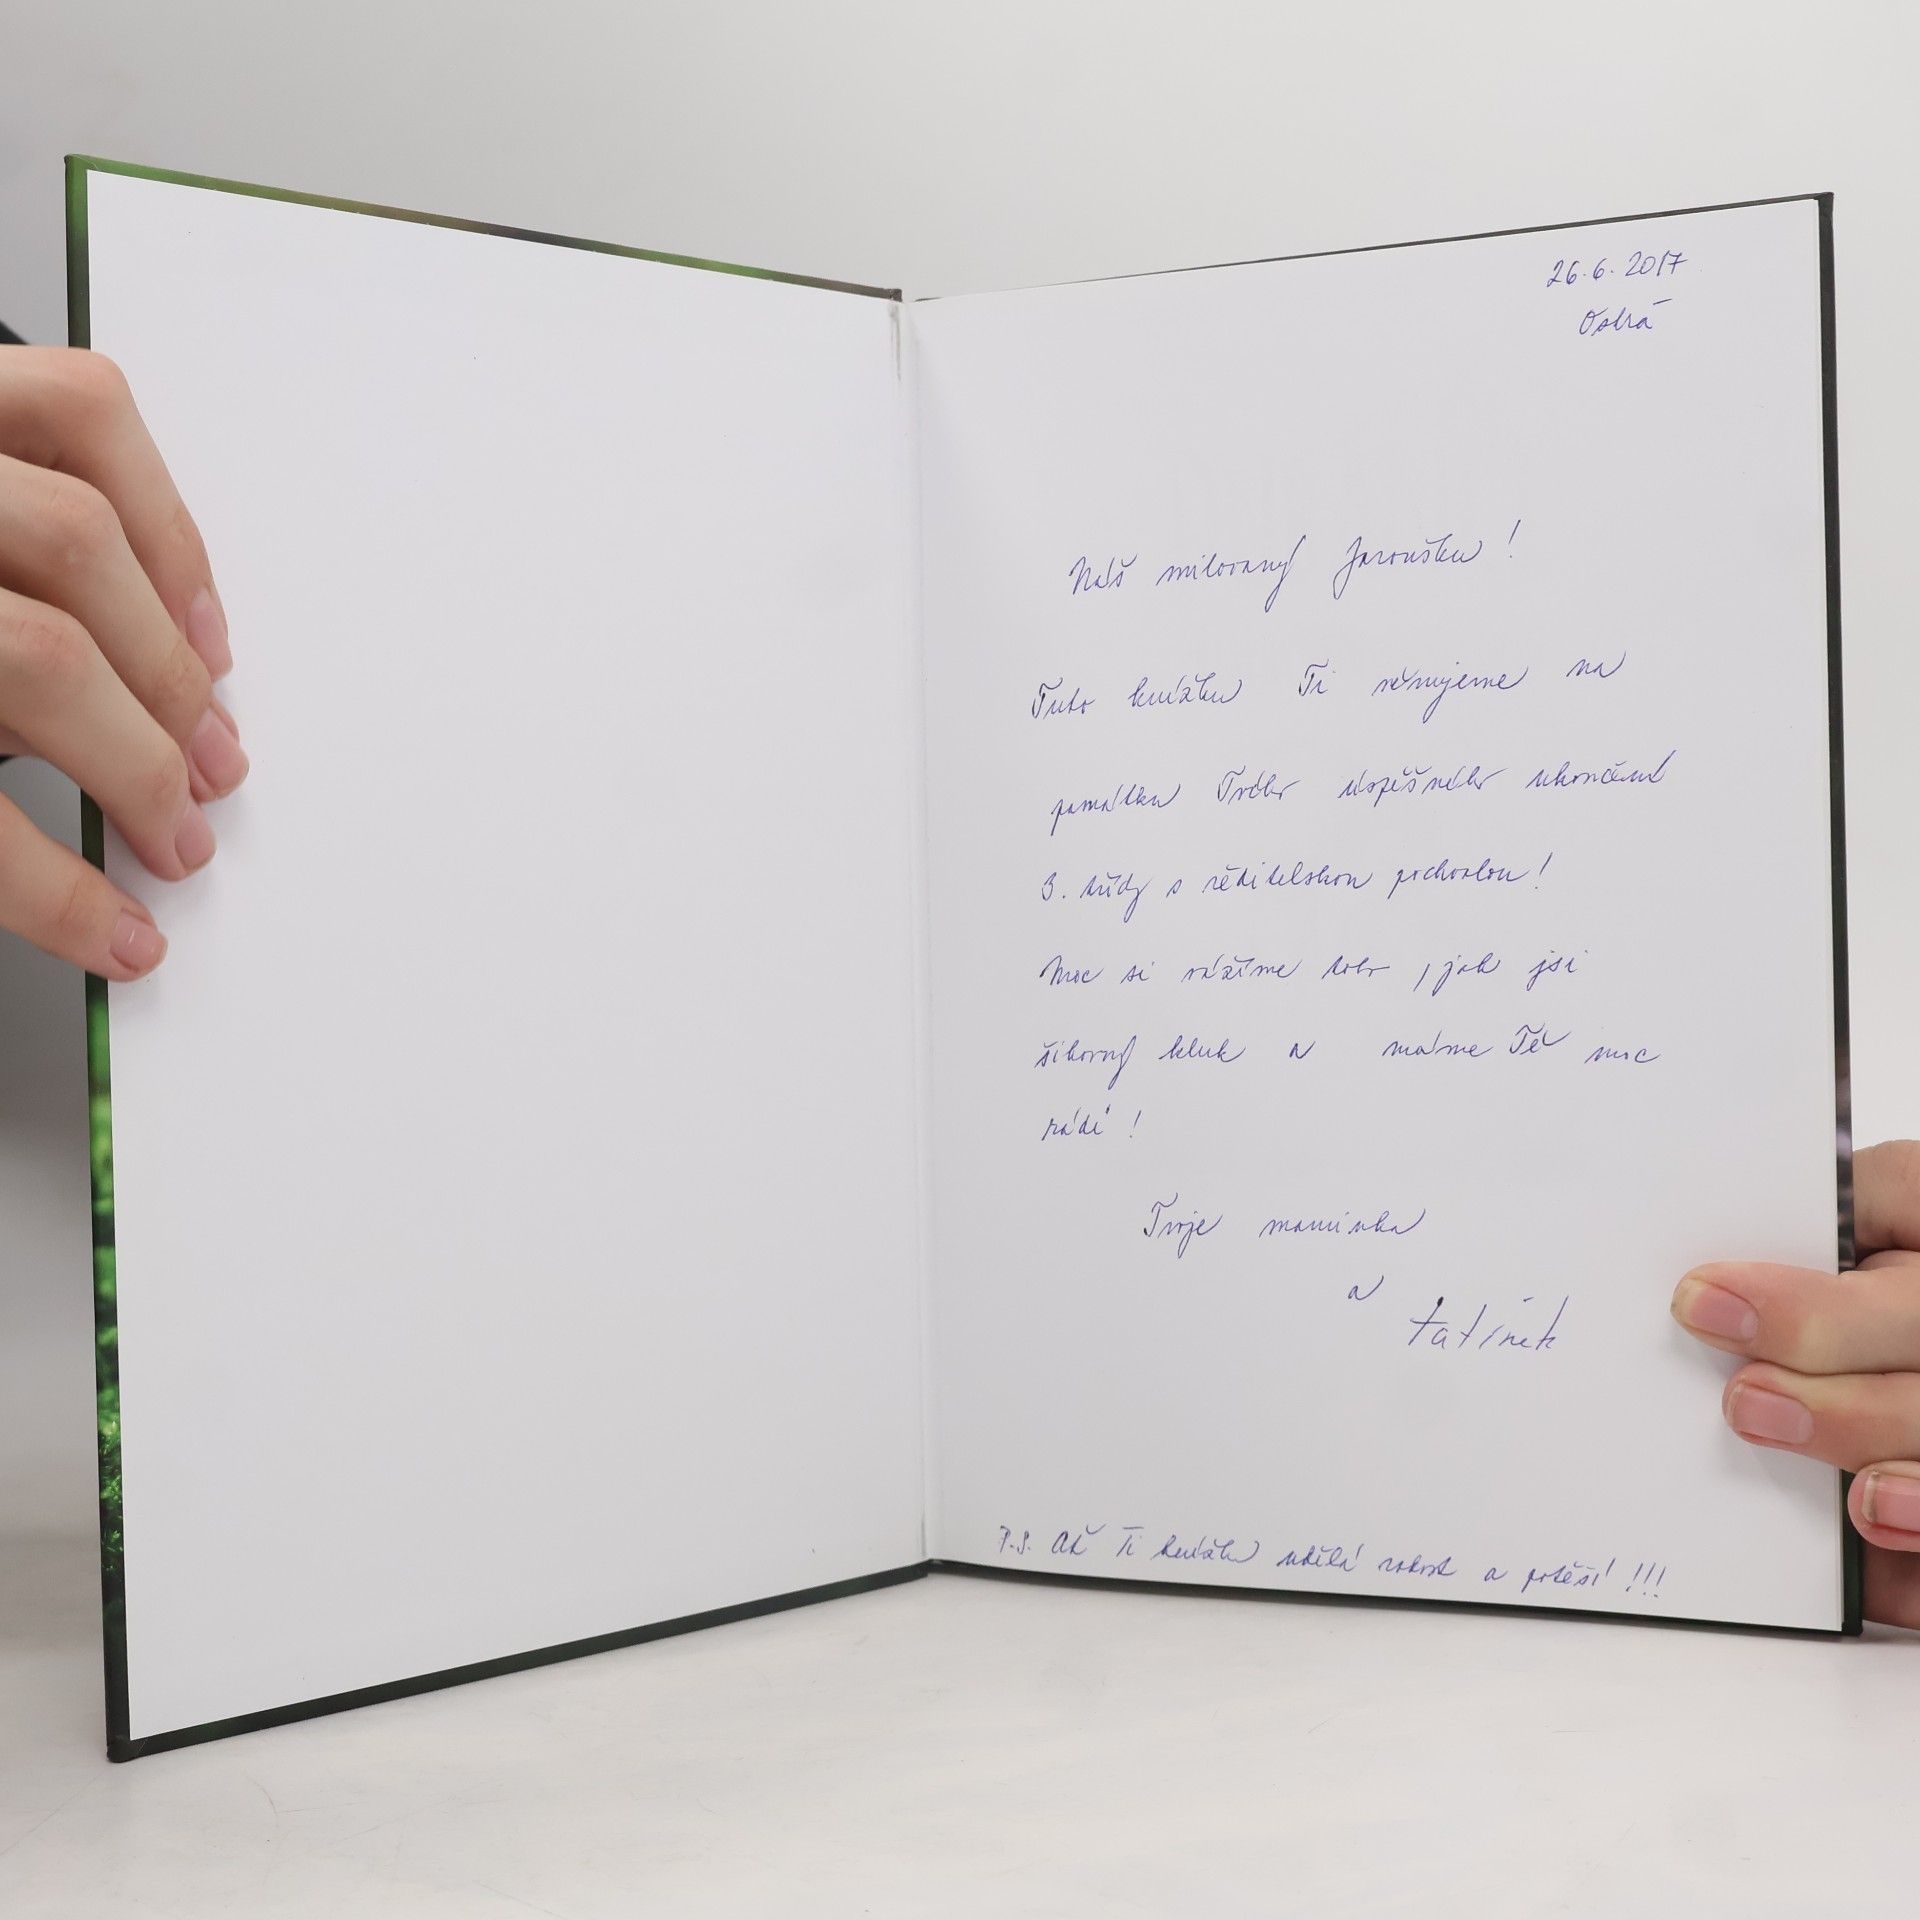 26.6.2017
Ostrá
Náš milovaný Jaroušku!
Tuto knížku Ti věnujeme na
památku Tvého úspěšného ukončení
3. třídy s ředitelskou pochvalou!
Moc si vážíme toho, jak jsi
šikovný kluk a máme Tě moc
rádi!
Tvoje maminka
a
tatínek
P.S. Ať Ti knížka udělá radost a potěší!!!